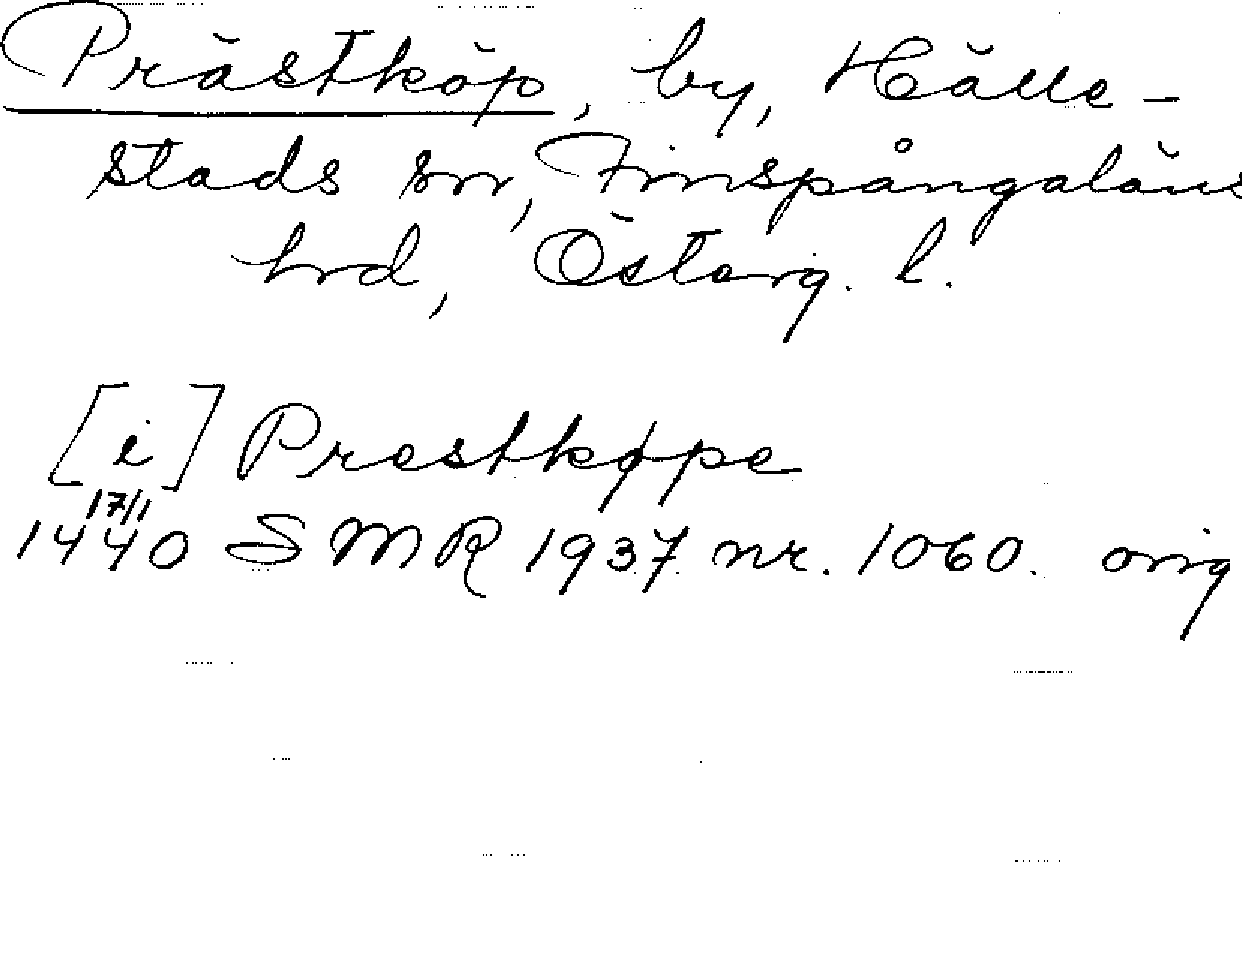 Prästköp, by, Hälle-
stads sn, Finspångaläns
hrd, Österg. l.
[i] Prestkøpe
17/1
1440 SMR 1937 nr. 1060. orig